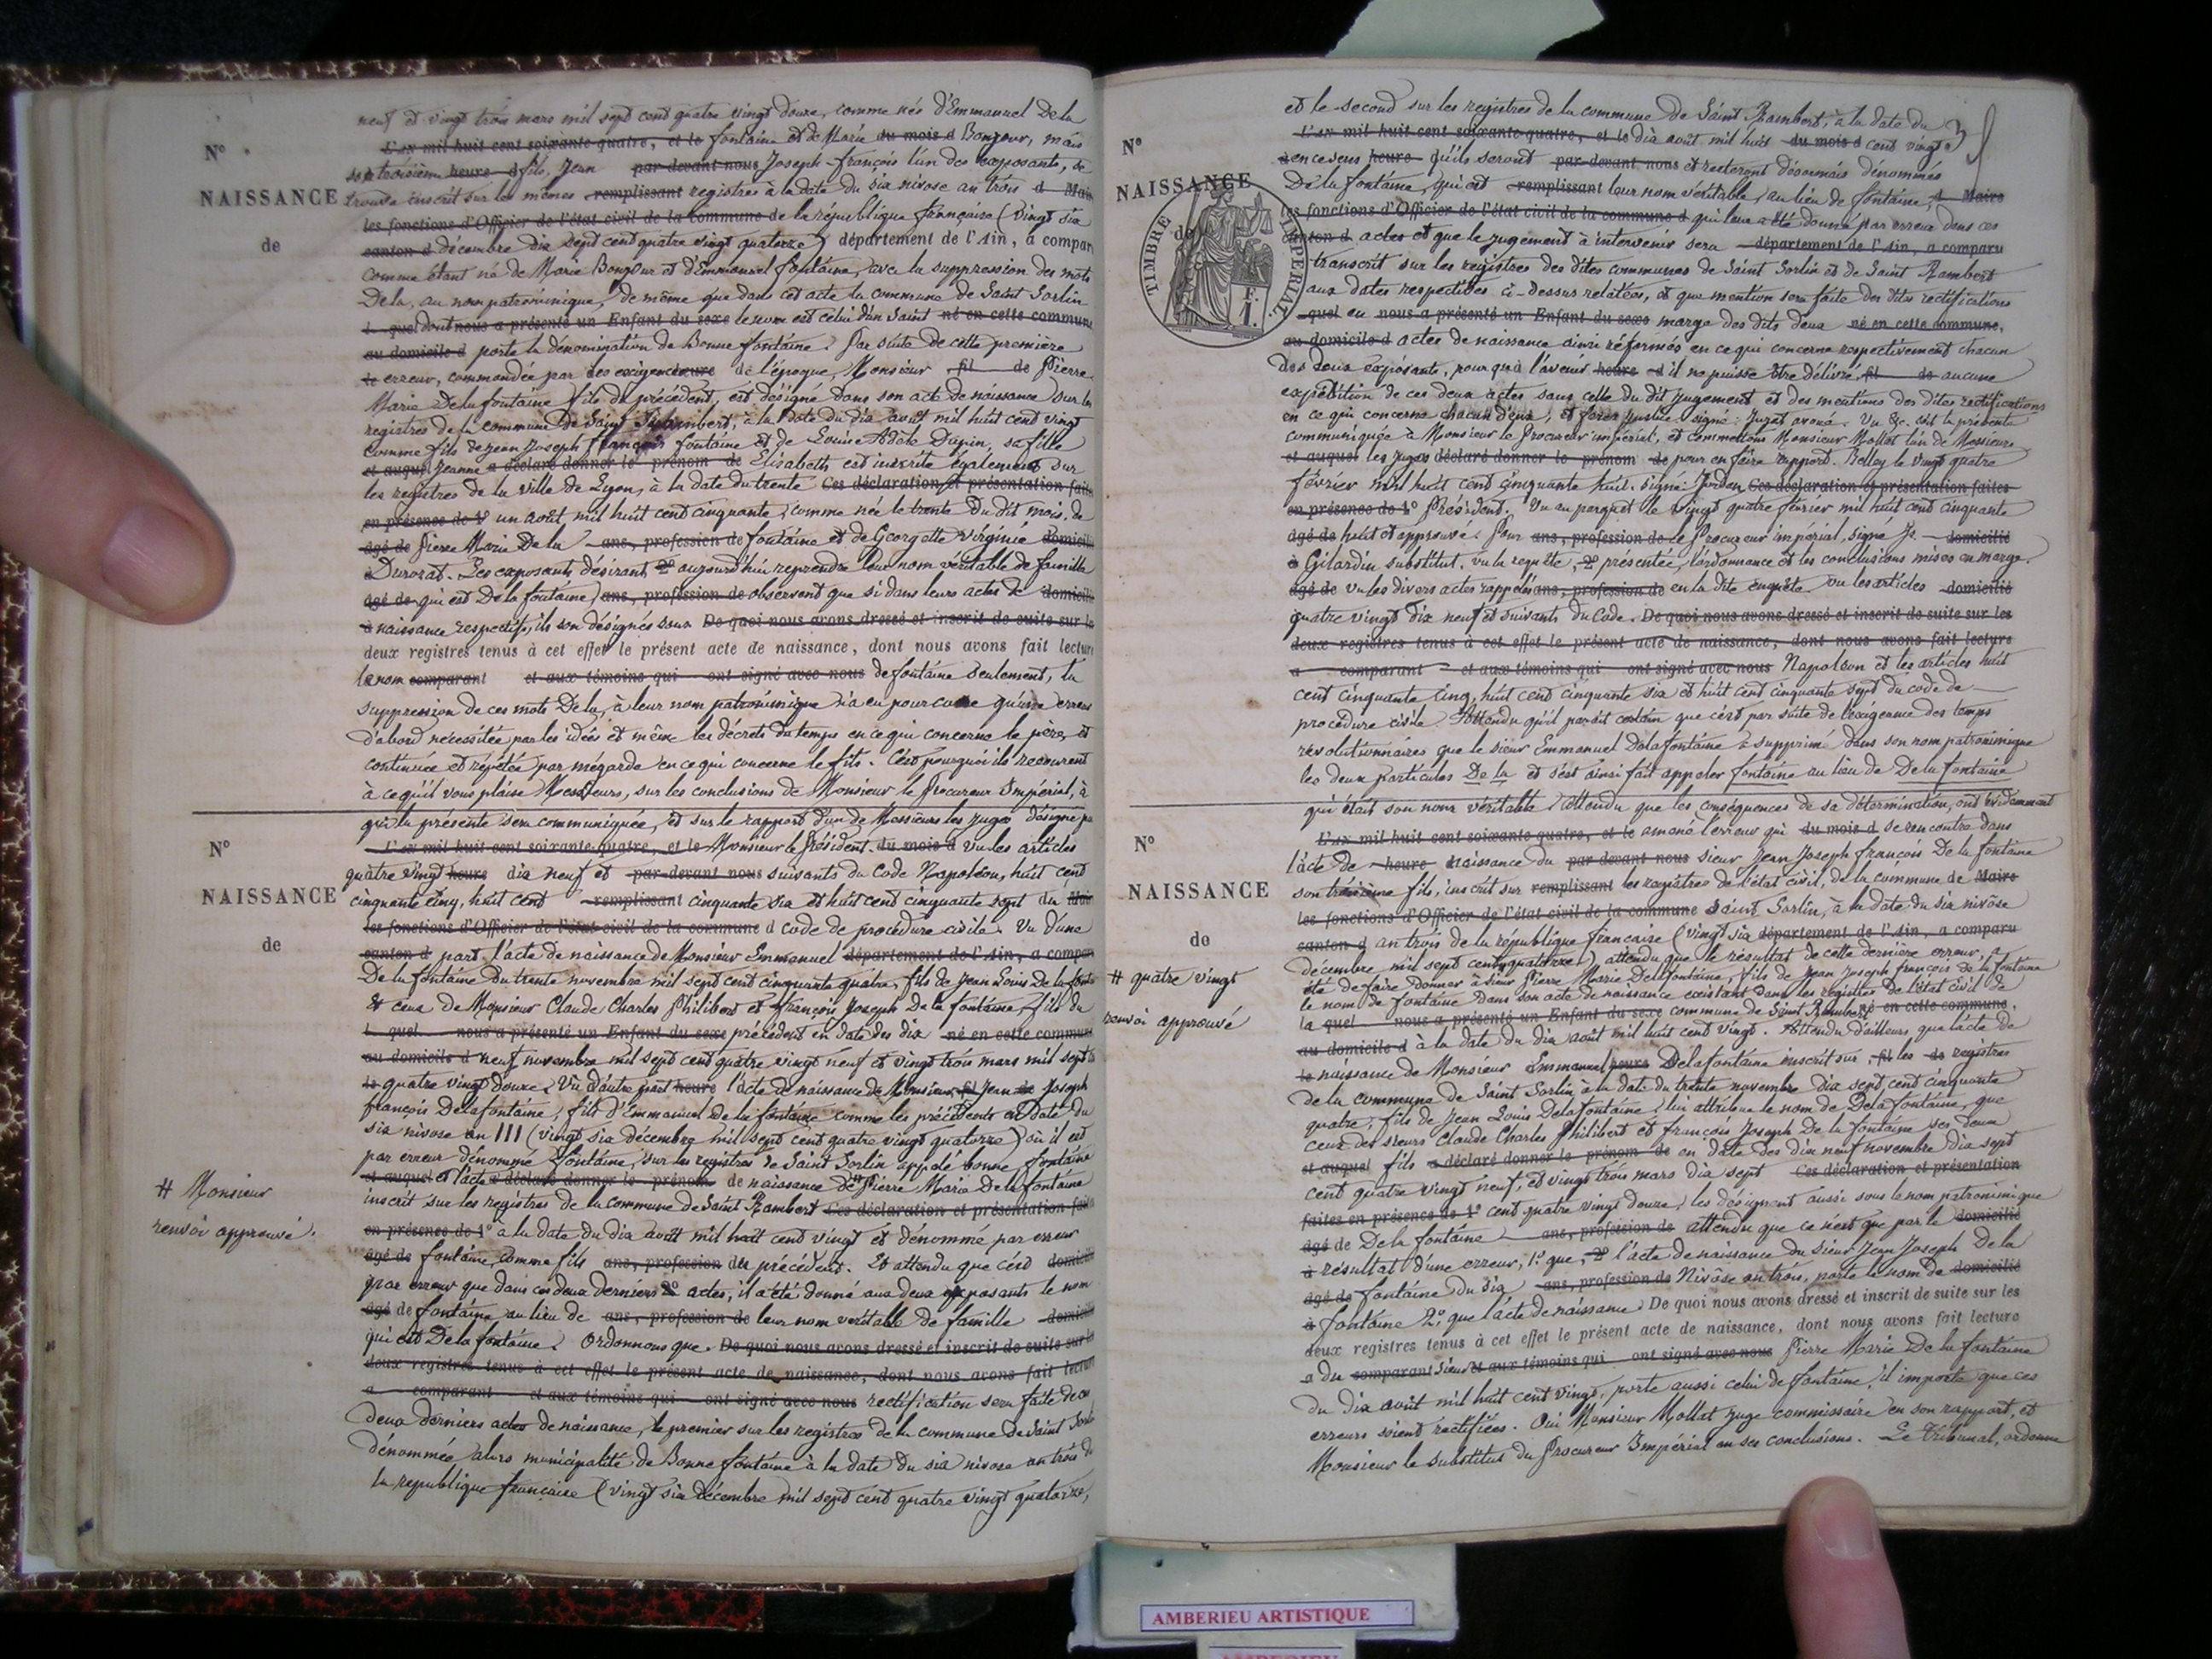 neuf et vingt trois mars mil sept cent quatre vingt douze, comme nés d'Emmanuel De la
L'an mil huit cent soixante-quatre, et le fontaine et de Marie du mois d Bonjour, mais
N°
son troisième heure d fils, Jean par-devant nous Joseph-françois l'un des exposants, se
NAISSANCE
trouve inscrit sur les mêmes remplissant registres à la date du six nivose an trois d Mair
les fonctions d'Officier de l'état civil de la commune de la république française (vingt six
de
canton d décembre dix sept cent quatre vingt quatorze) département de l'Ain, a compar
comme étant né de Marie Bonjour et d'Emmanuel fontaine, avec la suppression des mots
De la, au nom patronimique, de même que dans cet acte la commune de Saint Sorlin
l quel dont nous a présenté un Enfant du sexe le nom est celui d'un Saint né en cette commune
au domicile d porte la dénomination de Bonne fontaine. Par suite de cette première
de erreur, commandée par les exigences heure de l'époque, Monsieur fil de Pierre
Marie De la fontaine fils du précédent, est désigné dans son acte de naissance sur les
registres de la commune de Saint Rambert, à la date du dix août mil huit cent vingt
comme fils de Jean Joseph françois fontaine et de Louise Adèle Dupin, sa fille
et auquel Jeanne a déclaré donner le prénom de Elisabeth est inscrite également sur
les registres de la ville de Lyon, à la date du trente Ces déclaration et présentation faites
en présence de 1° un août, mil huit cent cinquante, comme née le trente du dit mois, de
âgé de Pierre Marie De la ans, profession de fontaine et de Georgette Virginie domicili
à Durosat. Les exposants désirant 2° aujourd'hui reprendre leur nom véritable de famille
âgé de qui est De la fontaine, ans, profession de observent que si dans leurs actes de domicili
à naissance respectifs, ils son désignés sous De quoi nous avons dressé et inscrit de suite sur le
deux registres tenus à cet effet le présent acte de naissance, dont nous avons fait lecture
le nom comparant et aux témoins qui ont signé avec nous de fontaine seulement, la
suppression de ces mots De la, à leur nom patronimique n'a eu pour cause qu'une erreur
d'abord nécessitée par les idées et même les décrets du temps en ce qui concerne le père, et
continuée et répétée par mégarde en ce qui concerne le fils. C'est pourquoi ils recourent
à ce qu'il vous plaise Messieurs, sur les conclusions de Monsieur le Procureur Impérial, à
qui la présente sera communiquée, et sur le rapport d'un de Messieurs les Juges désigné pa
N°
L'an mil huit cent soixante-quatre, et le Monsieur le Président. du mois d Vu les articles
quatre vingt heure dix neuf et par-devant nous suivants du Code Napoléon, huit cent
NAISSANCE
cinquante cinq, huit cent remplissant cinquante six et huit cent cinquante sept du Mair
les fonctions d'Officier de l'état civil de la commune d code de procédure civile. Vu d'une
de
canton d part l'acte de naissance de Monsieur Emmanuel département de l'Ain, a compar
De la fontaine du trente novembre mil sept cent cinquante quatre, fils de Jean Louis De la font
Et ceux de Monsieur Claude Charles Philibert et françois Joseph De la fontaine, fils du
l quel nous a présenté un Enfant du sexe précédent en date des dix né en cette commune
au domicile d neuf novembre mil sept cent quatre vingt neuf et vingt trois mars mil sept
le quatre vingt douze, Vu d'autre part heure l'acte de naissance de Monsieur fil Jean de Joseph
françois De la fontaine, fils d'Emmanuel De la fontaine comme les précédents en date du
six nivose an III (vingt six décembre mil sept cent quatre vingt quatorze) où il est
par erreur dénommé fontaine, sur les registres de Saint Sorlin appelé bonne fontaine
et auquel et l'acte a déclaré donner le prénom de naissance de # Pierre Marie De la fontaine
# Monsieur
inscrit sur les registres de la commune de Saint Rambert Ces déclaration et présentation fai
renvoi approuvé.
en présence de 1° à la date du dix août mil huit cent vingt et dénommé par erreur
âgé de fontaine, comme fils ans, profession du précédent. Et attendu que c'est domicili
par erreur que dans ces deux derniers 2° actes, il a été donné aux deux exposants le nom
âgé de fontaine au lieu de ans, profession de leur nom véritable de famille domicili
qui est De la fontaine. Ordonnons que De quoi nous avons dressé et inscrit de suite sur le
deux registres tenus à cet effet le présent acte de naissance, dont nous avons fait lecture
a comparant et aux témoins qui ont signé avec nous rectification sera faite de ces
deux derniers actes de naissance, le premier sur les registres de la commune de Saint Sorlin
dénommée alors municipalité de Bonne fontaine à la date du six nivose an trois de
la republique française (vingt six décembre mil sept cent quatre vingt quatorze,
et le second sur les registres de la commune de Saint Rambert, à la date du
3
L'an mil huit cent soixante-quatre, et le dix août mil huit du mois d cent vingt
N°
à en ce sens heure qu'ils seront par-devant nous et resteront désormais dénommés
NAISSANCE
De la fontaine, qui est remplissant leur nom véritable, au lieu de fontaine, d Maire
les fonctions d'Officier de l'état civil de la commune d qui leur a été donné par erreur dans ces
de
canton d actes et que le jugement à intervenir sera département de l'Ain, a comparu
TIMBRE IMPERIAL
1 F.
transcrit sur les registres des dites communes de Saint Sorlin et de Saint Rambert
aux dates respectives ci-dessus relatées, et que mention sera faite des dites rectifications
quel en nous a présenté un Enfant du sexe marge des dits deux né en cette commune,
au domicile d actes de naissance ainsi réformés en ce qui concerne respectivement chacun
des deux exposants, pour qu'à l'avenir heure d il ne puisse être délivré fil de aucune
expédition de ces deux actes sans celle du dit Jugement et des mentions des dites rectifications
en ce qui concerne chacun d'eux, et ferez justice signé: Juget avoué. Vu &c. soit la présente
communiquée à Monsieur le Procureur impérial, et commettons Monsieur Mollat l'un de Messieurs
et auquel les juges déclaré donner le prénom de pour en faire rapport. Belley le vingt quatre
février mil huit cent cinquante huit. signé: Jordan Ces déclaration et présentation faites
en présence de 1° Président. Vu au parquet le vingt quatre février mil huit cent cinquante
âgé de huit et approuvé. Pour ans, profession de le Procureur impérial, signé Js. domicilié
à Gilardin substitut. vu la requête, 2° présentée, l'ordonnance et les conclusions mises en marge.
âgé de vu les divers actes rappelés ans, profession de en la dite enquête. vu les articles domicilié
quatre vingt dix neuf et suivants du Code. De quoi nous avons dressé et inscrit de suite sur les
deux registres tenus à cet effet le présent acte de naissance, dont nous avons fait lecture
a comparant et aux témoins qui ont signé avec nous Napoléon et les articles huit
cent cinquante cinq, huit cent cinquante six et huit cent cinquante sept du code de
procédure civile Attendu qu'il parait certain que c'est par suite de l'exigence des temps
révolutionnaires que le sieur Emmanuel De la fontaine a supprimé dans son nom patronimique
les deux particules De la et s'est ainsi fait appeler fontaine au lieu de De la fontaine
qui était son nom véritable. Attendu que les conséquences de sa détermination, ont évidemment
N°
L'an mil huit cent soixante-quatre, et le amené l'erreur qui du mois d se rencontre dans
l'acte de heure naissance du par-devant nous sieur Jean Joseph françois De la fontaine
NAISSANCE
son troisième fils, inscrit sur remplissant les registres de l'état civil, de la commune de Maire
les fonctions d'Officier de l'état civil de la commune Saint Sorlin, à la date du six nivôse
de
canton d an trois de la république française (vingt six département de l'Ain, a comparu
décembre mil sept cent # quatorze) attendu que le résultat de cette dernière erreur, a
# quatre vingt
été de faire donner à sieur Pierre Marie De la fontaine, fils de Jean Joseph françois De la fontaine
le nom de fontaine dans son acte de naissance existant dans les registres de l'état civil de
renvoi approuvé
la quel nous a présenté un Enfant du sexe commune de Saint Rambert né en cette commune,
au domicile d à la date du dix août mil huit cent vingt. Attendu d'ailleurs que l'acte de
le naissance de Monsieur Emmanuel heure De la fontaine inscrit sur fil les de registres
de la commune de Saint Sorlin à la date du trente novembre dix sept cent cinquante
quatre, fils de Jean Louis De la fontaine, lui attribue le nom de De la fontaine, que
ceux des sieurs Claude Charles Philibert et françois Joseph De la fontaine ses deux
et auquel fils a déclaré donner le prénom de en date des dix neuf novembre dix sept
cent quatre vingt neuf, et vingt trois mars dix sept Ces déclaration et présentation
faites en présence de 1° cent quatre vingt douze, les désignent aussi sous le nom patronimique
âgé de De la fontaine ans, profession de attendu que ce n'est que par le domicilié
à résultat d'une erreur, 1° que, 2° l'acte de naissance du sieur Jean Joseph De la
âgé de fontaine du six ans, profession de Nivôse an trois, porte le nom de domicilié
à fontaine 2° que l'acte de naissance De quoi nous avons dressé et inscrit de suite sur les
deux registres tenus à cet effet le présent acte de naissance, dont nous avons fait lecture
a du comparant sieur et aux témoins qui ont signé avec nous Pierre Marie De la fontaine
du dix août mil huit cent vingt, porte aussi celui de fontaine, il importe que ces
erreurs soient rectifiées. Oui Monsieur Mollat Juge commissaire en son rapport, et
Monsieur le substitut du Procureur Impérial en ses conclusions. Le Tribunal, ordonne
AMBERIEU ARTISTIQUE
AMBERIEU